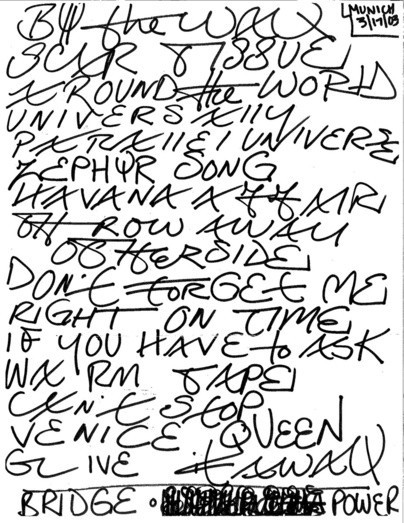 BY the WAY
MUNICH
3/17/03
SCAR TISSUE
AROUND the WORLD
UNIVERSALLY
PARALLEL UNIVERSE
ZEPHYR SONG
HAVANA AFFAIR
THROW AWAY
OtHerSIDE
DON't FORGEt ME
RIGHT ON TIME
IF YOU HAVE to ASK
WARM TAPE
CAN't StOP
VENICE QUEEN
GIVE it AWAY
BRIDGE • POWER